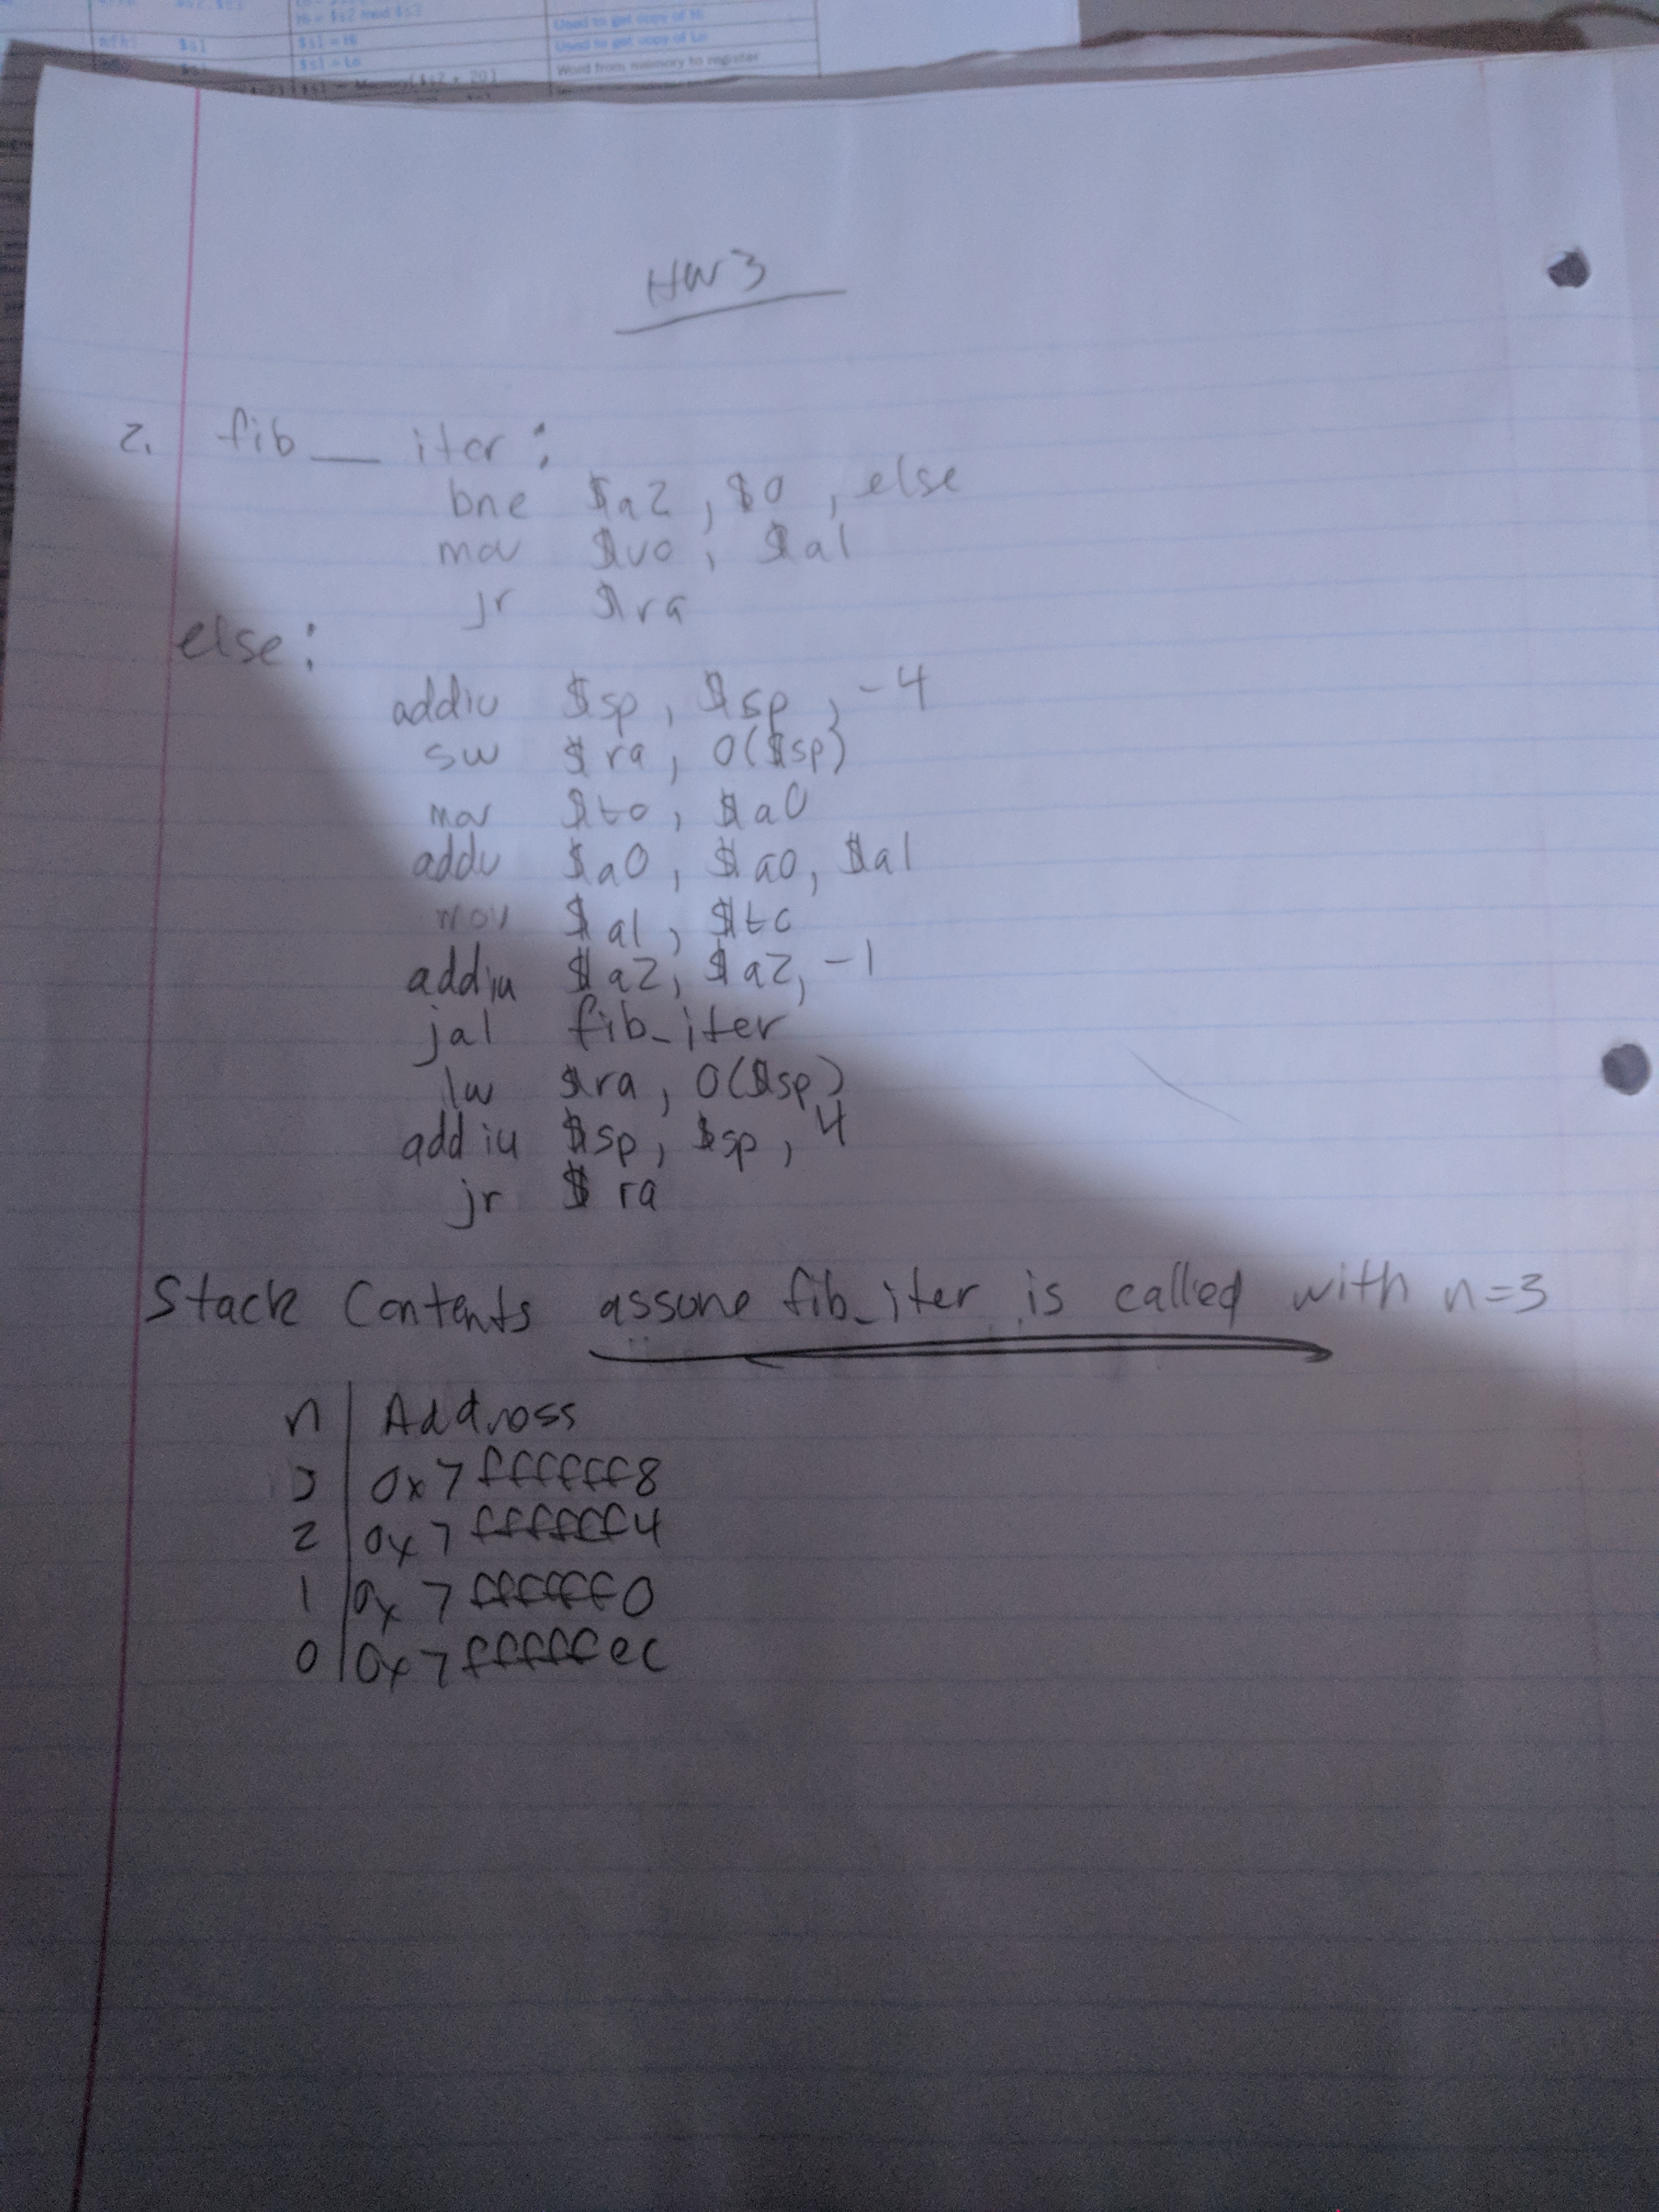 Hi = $s2 mod $s3
Used to get copy of Hi
mfhi $s1 $s1 = Hi Used to get copy of Lo
$s1 = Lo Word from memory to register
HW3
2. fib__iter:
bne $a2, $0, else
mov $v0, $a1
jr $ra
else:
addiu $sp, $sp, -4
sw $ra, 0($sp)
mov $t0, $a0
addu $a0, $a0, $a1
mov $a1, $t0
addiu $a2, $a2, -1
jal fib_iter
lw $ra, 0($sp)
addiu $sp, $sp, 4
jr $ra
Stack Contents assume fib_iter is called with n=3
n | Address
3 | 0x7ffffff8
2 | 0x7ffffff4
1 | 0x7ffffff0
0 | 0x7fffffec